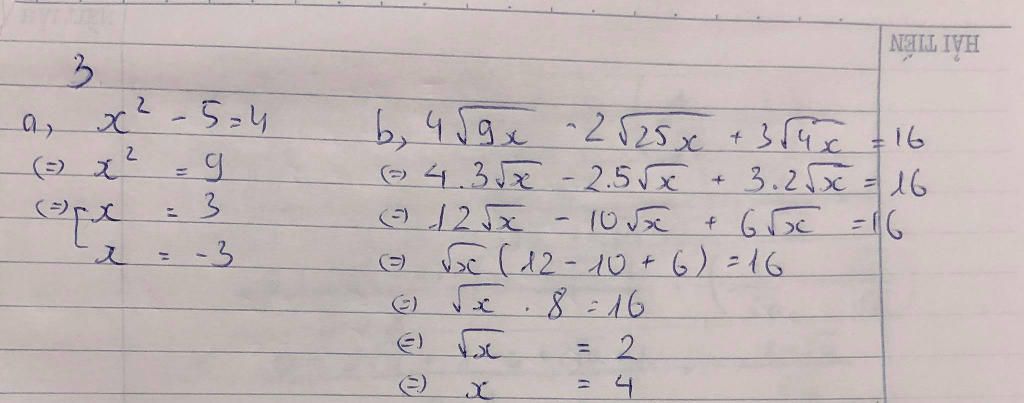 HẢI TIẾN
3
a, x² - 5 = 4
(=) x² = 9
(=) [ x = 3
x = -3
b, 4√9x - 2√25x + 3√4x = 16
(=) 4.3√x - 2.5√x + 3.2√x = 16
(=) 12√x - 10√x + 6√x = 16
(=) √x (12 - 10 + 6) = 16
(=) √x . 8 = 16
(=) √x = 2
(=) x = 4